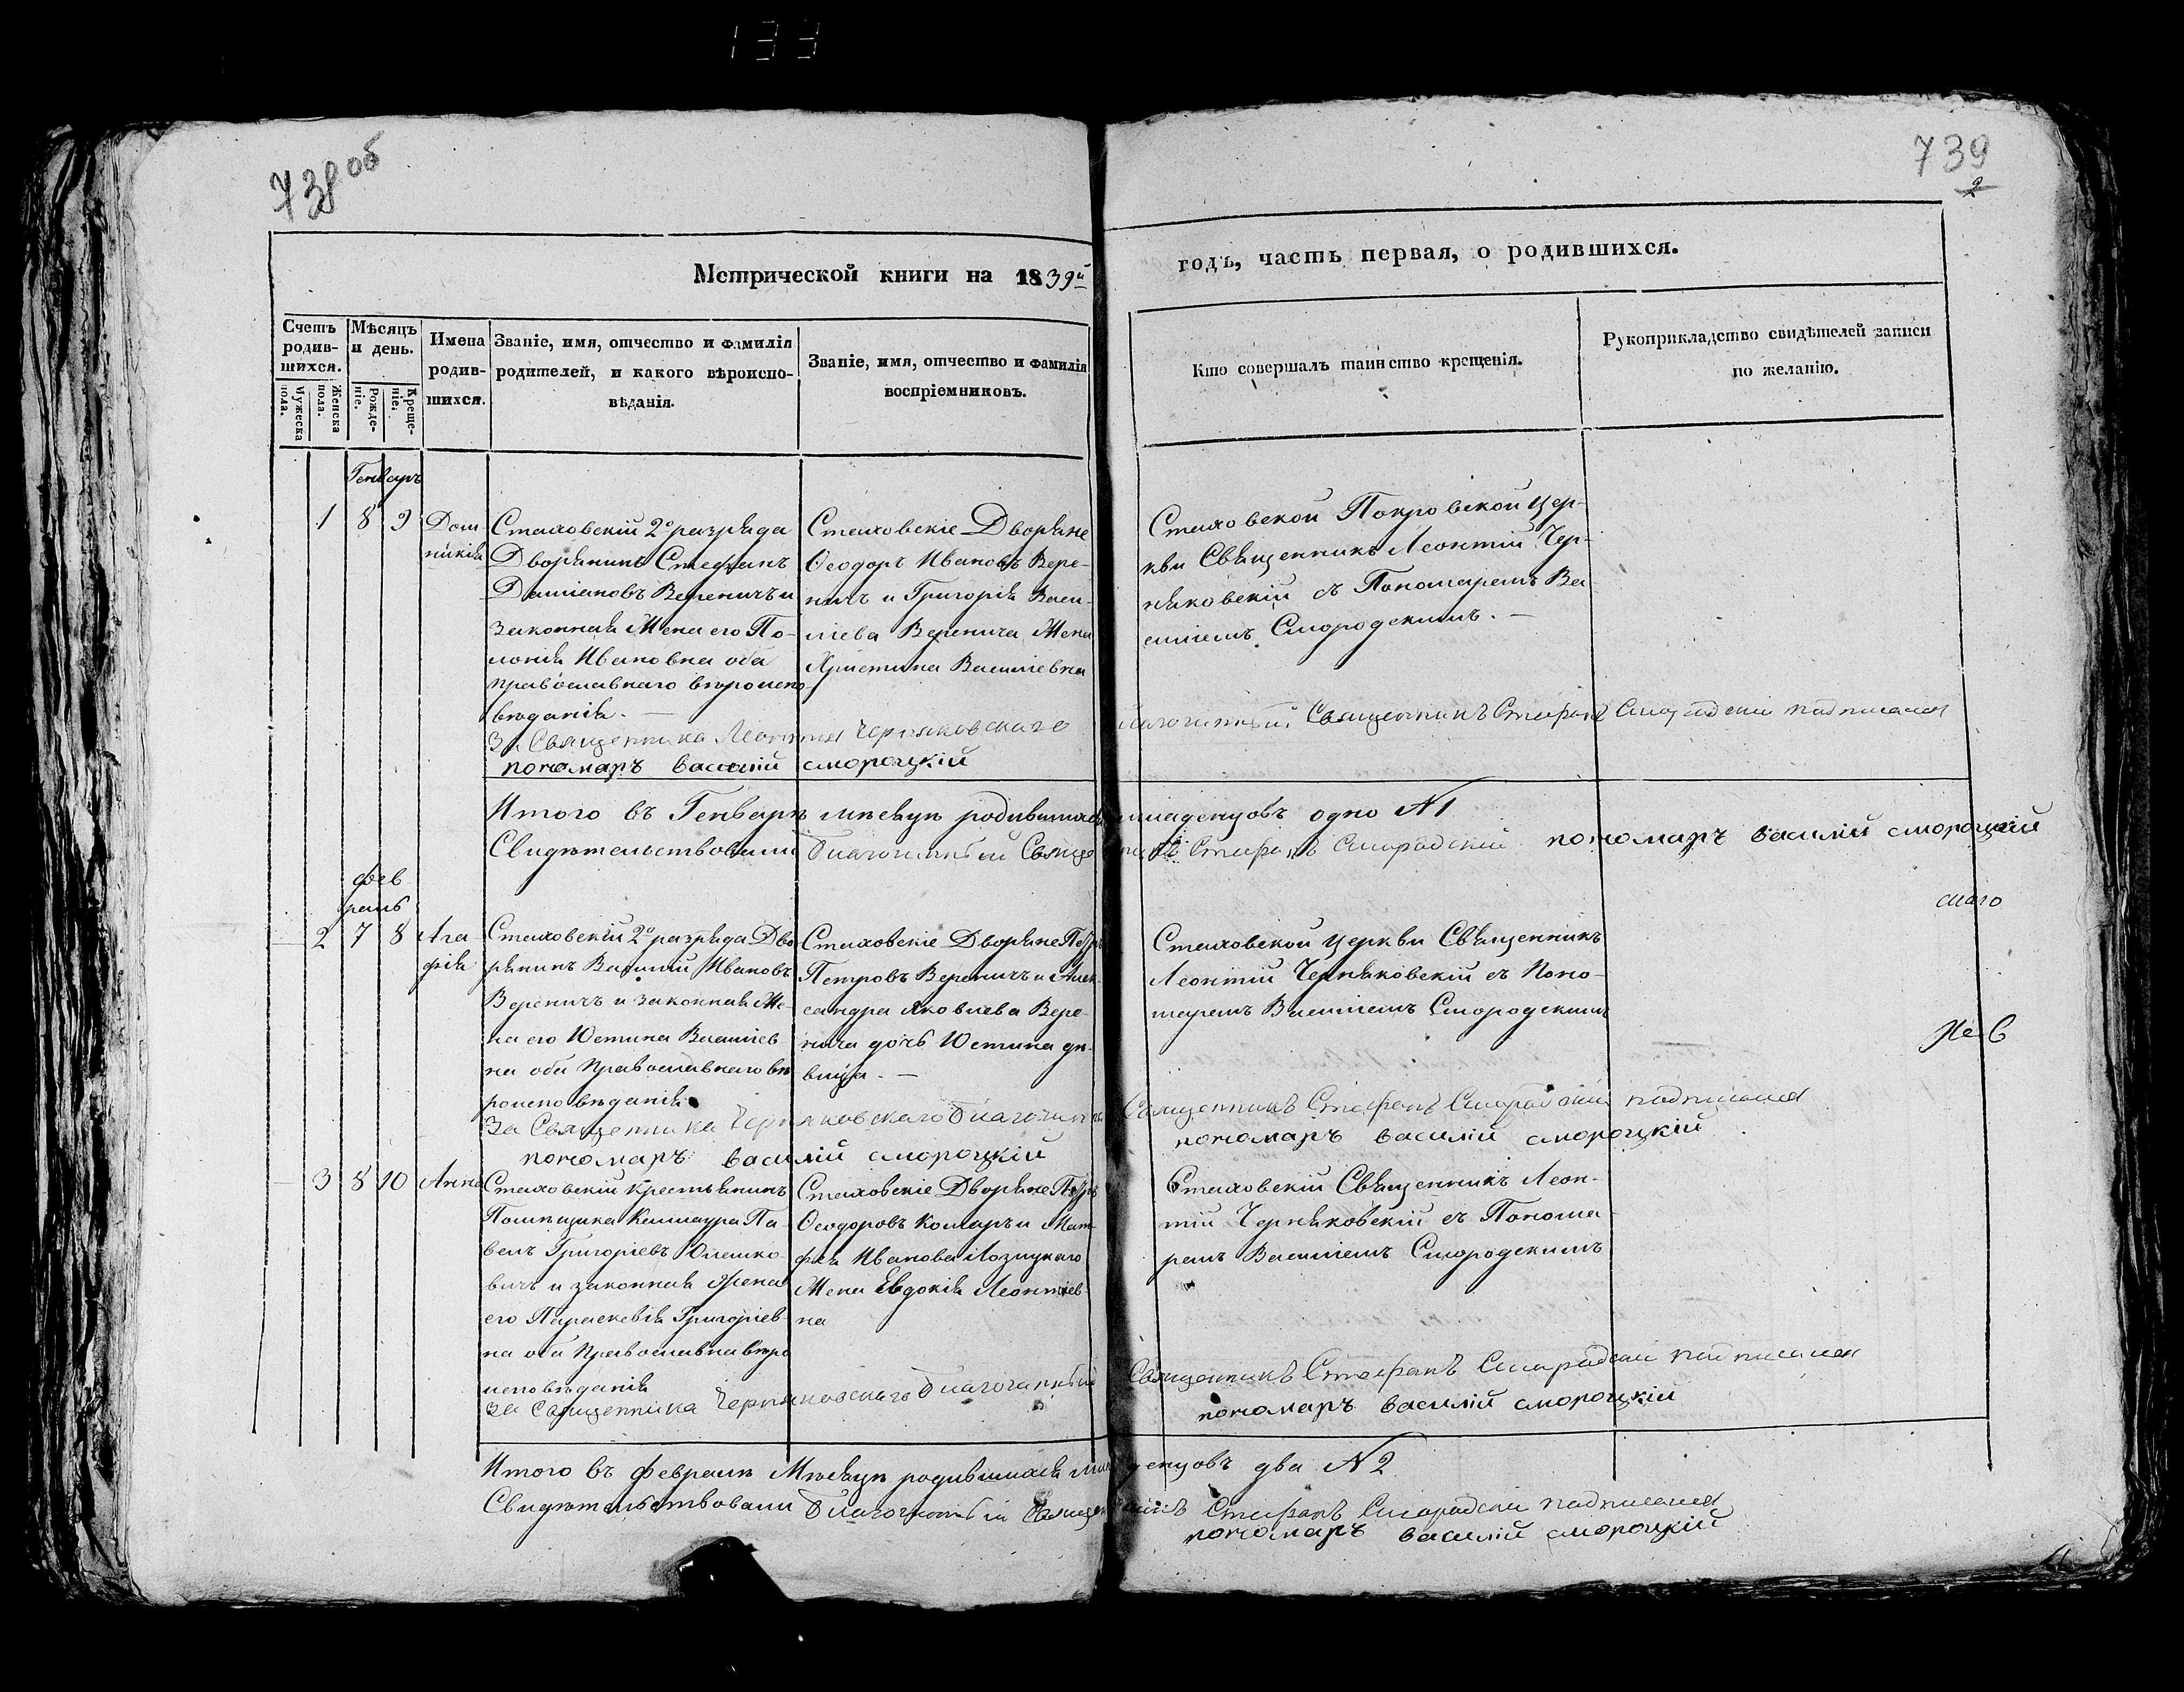 133
738 об
739
2
Метрической книги на 1839й
годъ, часть первая, о родившихся.
Счетъ родив-шихся.
Мужеска пола.
Женска пола.
Мѣсяцъ и день.
Рожде-ніе.
Креще-ніе.
Имена родив-шихся.
Званіе, имя, отчество и фамилія
родителей, и какого вѣроиспо-
вѣданія.
Званіе, имя, отчество и фамилія
воспріемниковъ.
Кто совершалъ таинство крещенія.
Рукоприкладство свидѣтелей записи
по желанію.
Генварь
1 8 9
Дом-
никія
Стаховскій 2о разряда
Дворянинъ Стефанъ
Даміановъ Вереничъ и
законная Жена его По-
лонія Ивановна оба
православнаго вѣроиспо-
вѣданія. —
Стаховскіе Дворяне
Ѳеодоръ Ивановъ Вере-
ничъ и Григорія Васи-
ліева Веренича Жена
Христина Василіевна
Стаховской Покровской Цер-
кви Священникъ Леонтій Чер-
няковскій съ Пономаремъ Ва-
силіемъ Смородскимъ. —
За Священника Леонтия Черняковскаго
Благочинный Священникъ Стефанъ Смородский подписался
пономаръ василій смороцкій
Итого въ Генварѣ мѣсяцѣ родившихся младенцовъ одно №1
Свидѣтельствовали Благочинный Священникъ Стефанъ Смородский пономаръ василій смороцкій
Фев-
раль
2 7 8
Ага-
фія
Стаховскій 2о разряда Дво-
рянинъ Василій Ивановъ
Вереничъ и законная Же-
на его Юстина Василіев-
на оба Православнаго вѣ-
роисповѣданія
Стаховскіе Дворяне Петръ
Петровъ Вереничъ и Алек-
сандра Яковлева Вере-
нича дочь Юстина дѣ-
вица. —
Стаховской Церкви Священникъ
Леонтій Черняковскій съ Поно-
маремъ Василіемъ Смородскимъ
За Священника Черняковскаго Благочинный Священникъ Стефанъ Смородский подписался
пономаръ василій смороцкій
пономаръ василій смороцкій
3 8 10
Анна
Стаховскій Крестьянинъ
Помѣщика Кельмаура Па-
велъ Григоріевъ Олешко-
вичъ и законная Жена
его Параскевія Григоріев-
на оба Православна вѣро
исповѣданія
Стаховскіе Дворяне Петръ
Ѳеодоровъ Комаръ и Мат-
фея Иванова Лозицкаго
Жена Евдокія Леонтіев-
на
Стаховскій Священникъ Леон-
тій Черняковскій съ Понома-
ремъ Василіемъ Смородскимъ
За Священника Черняковскаго Благочинный Священникъ Стефанъ Смородский подписался
пономаръ василій смороцкій
Итого въ Февралѣ Мѣсяцѣ родившихся младенцовъ два №2
Свидѣтельствовали Благочинный Священникъ Стефанъ Смородский подписался
пономаръ василій смороцкій